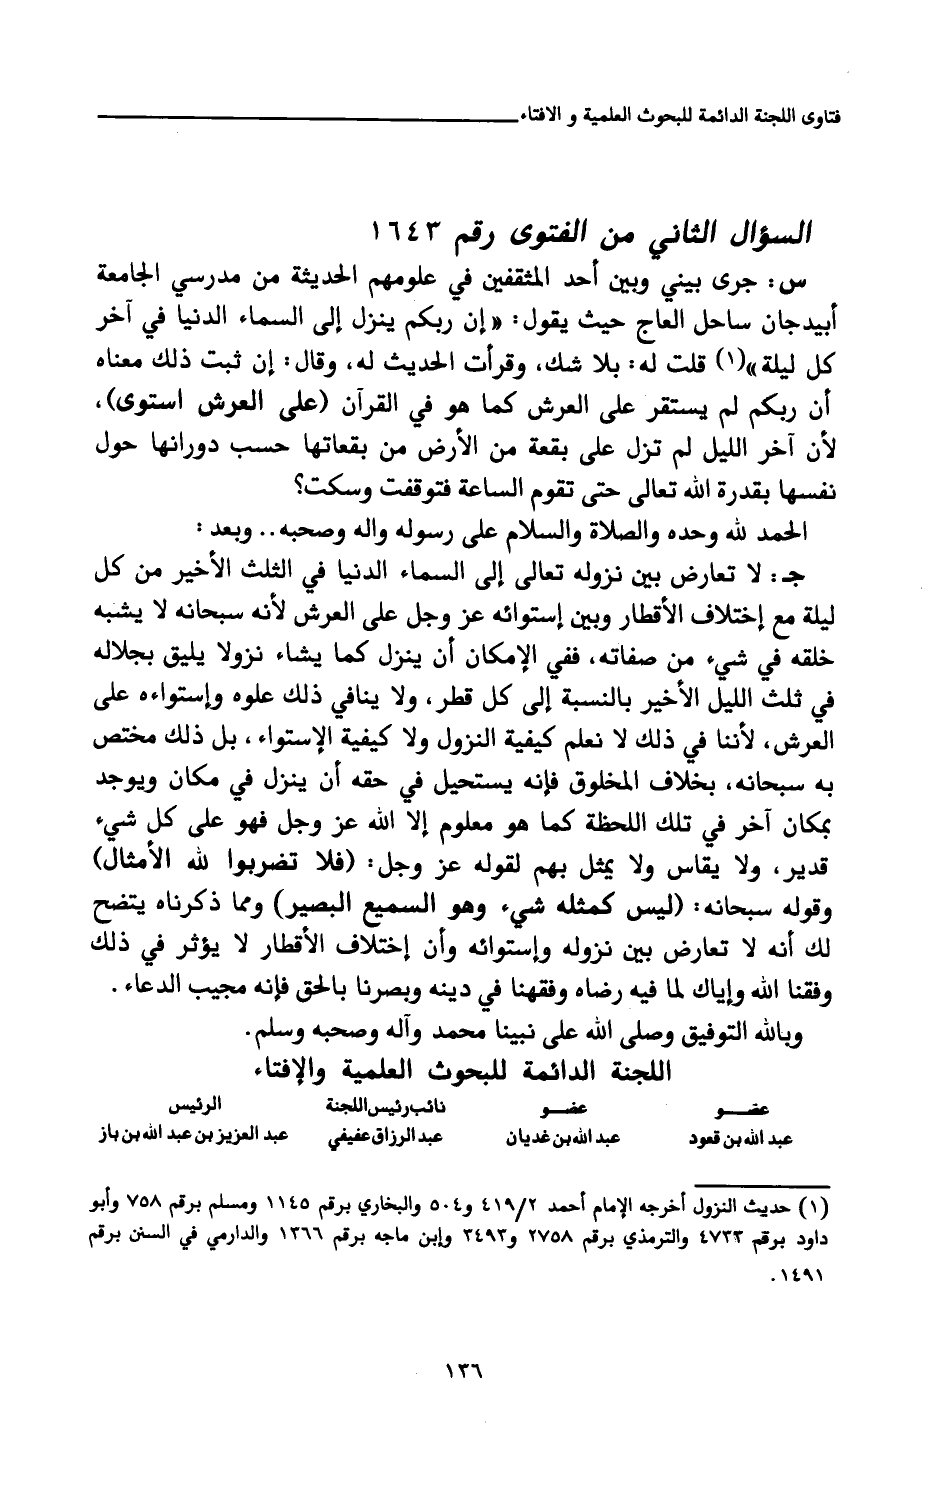 فتاوى اللجنة الدائمة للبحوث العلمية و الافتاء
السؤال الثاني من الفتوى رقم ١٦٤٣
س: جرى بيني وبين أحد المثقفين في علومهم الحديثة من مدرسي الجامعة
أبيدجان ساحل العاج حيث يقول: «إن ربكم ينزل إلى السماء الدنيا في آخر
كل ليلة»(١) قلت له: بلا شك، وقرأت الحديث له، وقال: إن ثبت ذلك معناه
أن ربكم لم يستقر على العرش كما هو في القرآن (على العرش استوى)،
لأن آخر الليل لم تزل على بقعة من الأرض من بقعاتها حسب دورانها حول
نفسها بقدرة الله تعالى حتى تقوم الساعة فتوقفت وسكت؟
الحمد لله وحده والصلاة والسلام على رسوله واله وصحبه.. وبعد:
جـ: لا تعارض بين نزوله تعالى إلى السماء الدنيا في الثلث الأخير من كل
ليلة مع إختلاف الأقطار وبين إستوائه عز وجل على العرش لأنه سبحانه لا يشبه
خلقه في شيء من صفاته، ففي الإمكان أن ينزل كما يشاء نزولا يليق بجلاله
في ثلث الليل الأخير بالنسبة إلى كل قطر، ولا ينافي ذلك علوه وإستواءه على
العرش، لأننا في ذلك لا نعلم كيفية النزول ولا كيفية الإستواء، بل ذلك مختص
به سبحانه، بخلاف المخلوق فإنه يستحيل في حقه أن ينزل في مكان ويوجد
بمكان آخر في تلك اللحظة كما هو معلوم إلا الله عز وجل فهو على كل شيء
قدير، ولا يقاس ولا يمثل بهم لقوله عز وجل: (فلا تضربوا لله الأمثال)
وقوله سبحانه: (ليس كمثله شيء وهو السميع البصير) ومما ذكرناه يتضح
لك أنه لا تعارض بين نزوله وإستوائه وأن إختلاف الأقطار لا يؤثر في ذلك
وفقنا الله وإياك لما فيه رضاه وفقهنا في دينه وبصرنا بالحق فإنه مجيب الدعاء.
وبالله التوفيق وصلى الله على نبينا محمد وآله وصحبه وسلم.
اللجنة الدائمة للبحوث العلمية والإفتاء
عضـــو عضـــو نائب رئيس اللجنة الرئيس
عبد الله بن قعود عبد الله بن غديان عبد الرزاق عفيفي عبد العزيز بن عبد الله بن باز
(١) حديث النزول أخرجه الإمام أحمد ٤١٩/٢ و٥٠٤ والبخاري برقم ١١٤٥ ومسلم برقم ٧٥٨ وأبو
داود برقم ٤٧٣٣ والترمذي برقم ٢٧٥٨ و٣٤٩٣ وإبن ماجه برقم ١٣٦٦ والدارمي في السنن برقم
١٤٩١.
١٣٦